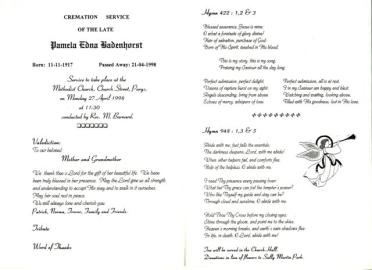 CREMATION SERVICE
OF THE LATE
Pamela Edna Badenhorst
Born: 11-11-1917 Passed Away: 21-04-1998
Service to take place at the
Methodist Church, Church Street, Parys,
on Monday 27 April 1998
at 11:30
conducted by Rev. M. Barnard.
Valediction:
To our beloved
Mother and Grandmother
We thank thee o Lord for the gift of her beautiful life. We have
been truly blessed in her presence. May the Lord give us all strength
and understanding to accept His way and to soak it in ourselves.
May her soul rest in peace.
We will always love and cherish you
Patrick, Norma, Trevor, Family and Friends.
Tribute
Word of Thanks
Hymn 422 : 1,2 & 3
Blessed assurance, Jesus is mine:
O what a foretaste of glory divine!
Heir of salvation, purchase of God;
Born of His Spirit, washed in His blood.
This is my story, this is my song,
Praising my Saviour all the day long.
Perfect submission, perfect delight,
Visions of rapture burst on my sight;
Angels descending, bring from above
Echoes of mercy, whispers of love.
Perfect submission, all is at rest,
I in my Saviour am happy and blest
Watching and waiting, looking above,
Filled with His goodness, lost in His love.
Hymn 948 : 1,3 & 5
Abide with me, fast falls the eventide;
The darkness deepens, Lord, with me abide!
When other helpers fail, and comforts flee,
Help of the helpless, O abide with me.
I need Thy presence every passing hour;
What but Thy grace can foil the tempter's power?
Who like Thyself my guide and stay can be?
Through cloud and sunshine, O abide with me.
Hold Thou Thy Cross before my closing eyes;
Shine through the gloom, and point me to the skies;
Heaven's morning breaks, and earth's vain shadows flee
In life, in death, O Lord, abide with me!
Tea will be served in the Church Hall.
Donations in lieu of flowers to Sally Martin Park.